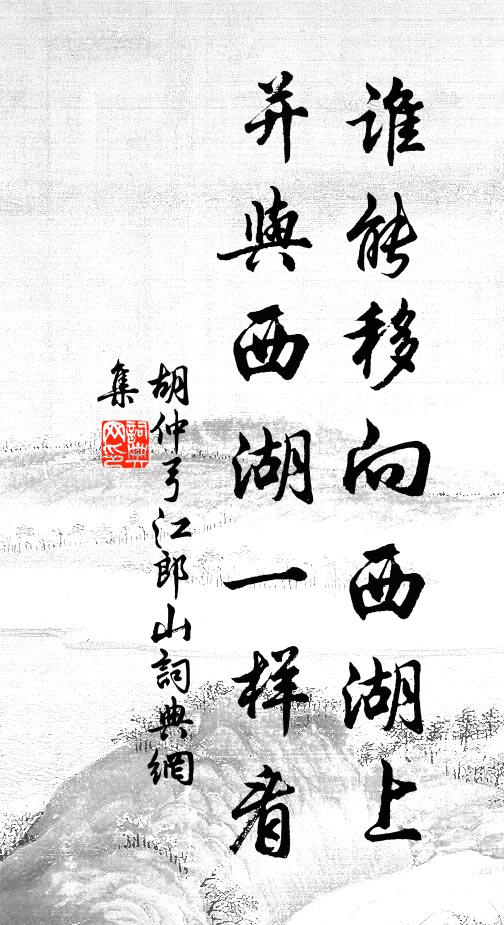 谁能移向西湖上
并與西湖一样看
胡仲弓江郎山詞典網
集